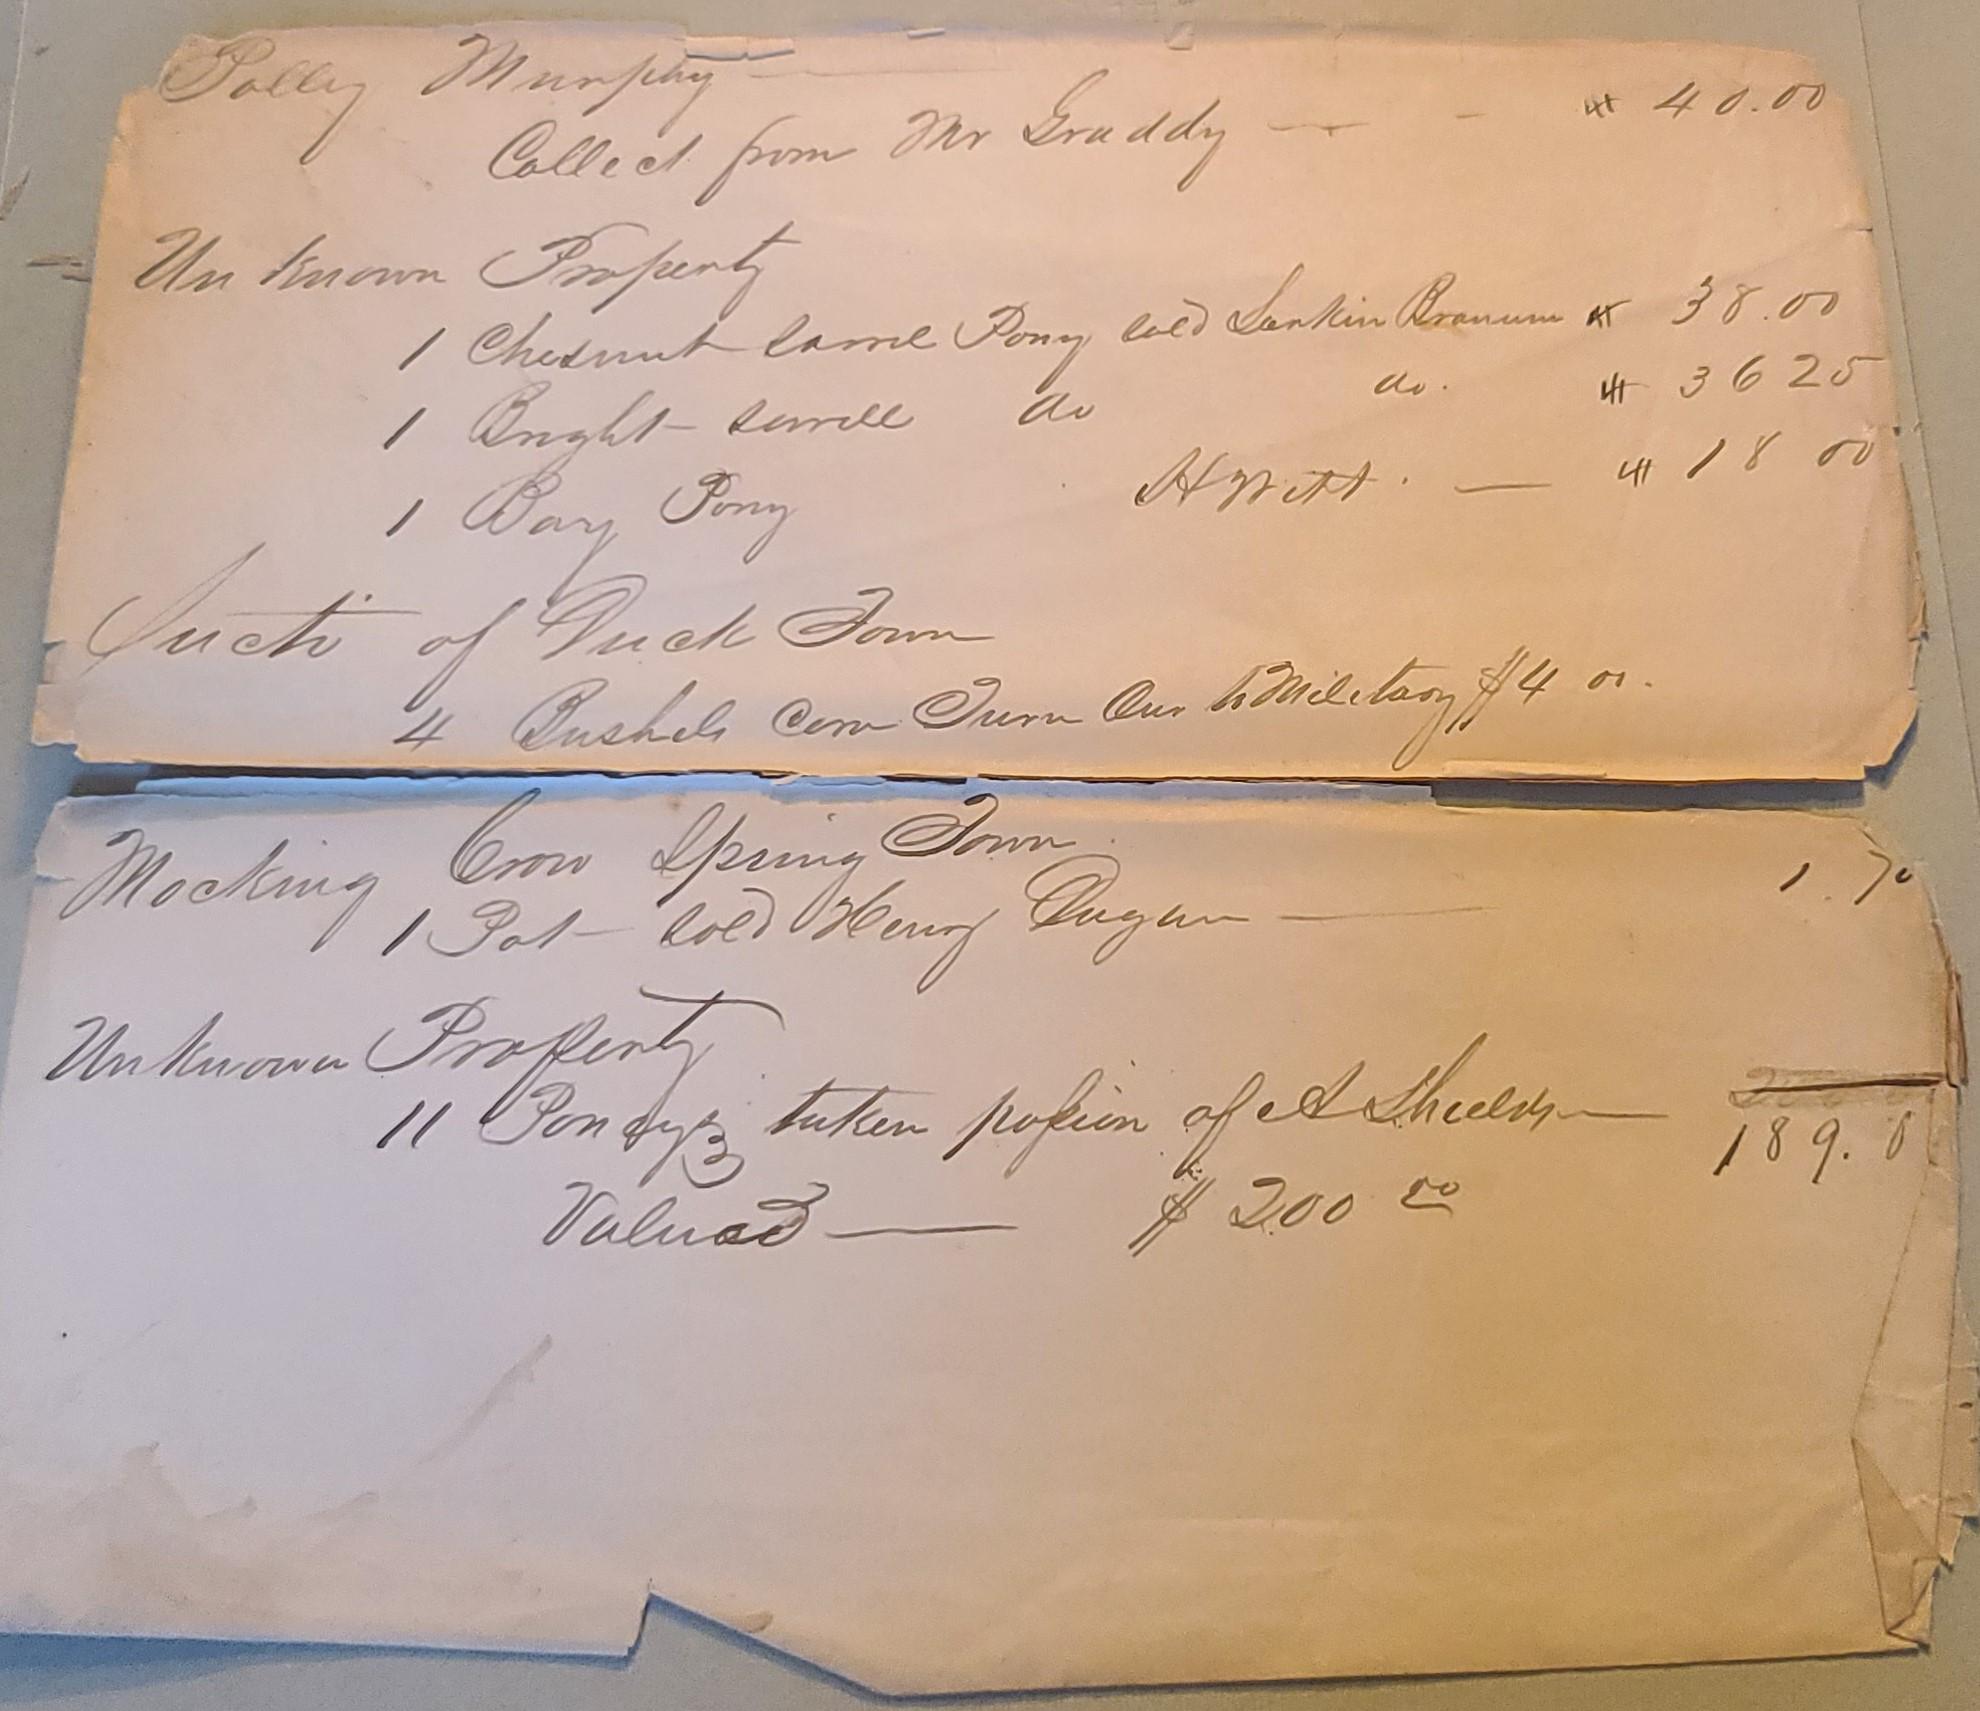 Polly Murphy
Collect from Mr Graddy — - $ 40.00
Un Known Property
1 Chesnut sorrel Pony sold Larkin Branum $ 38.00
1 Bright sorrell do do. $ 36 25
1 Bay Pony H Witt. — $ 18 00
of Duck Town
4 Bushels Corn Turn Over to Military $4 00.
Mocking Crow Spring Town
1 Pot sold Henry Dugan — 1.70
Unknown Property
11 Poneys taken posion of A Shields —
189.
Valued — $ 200 00